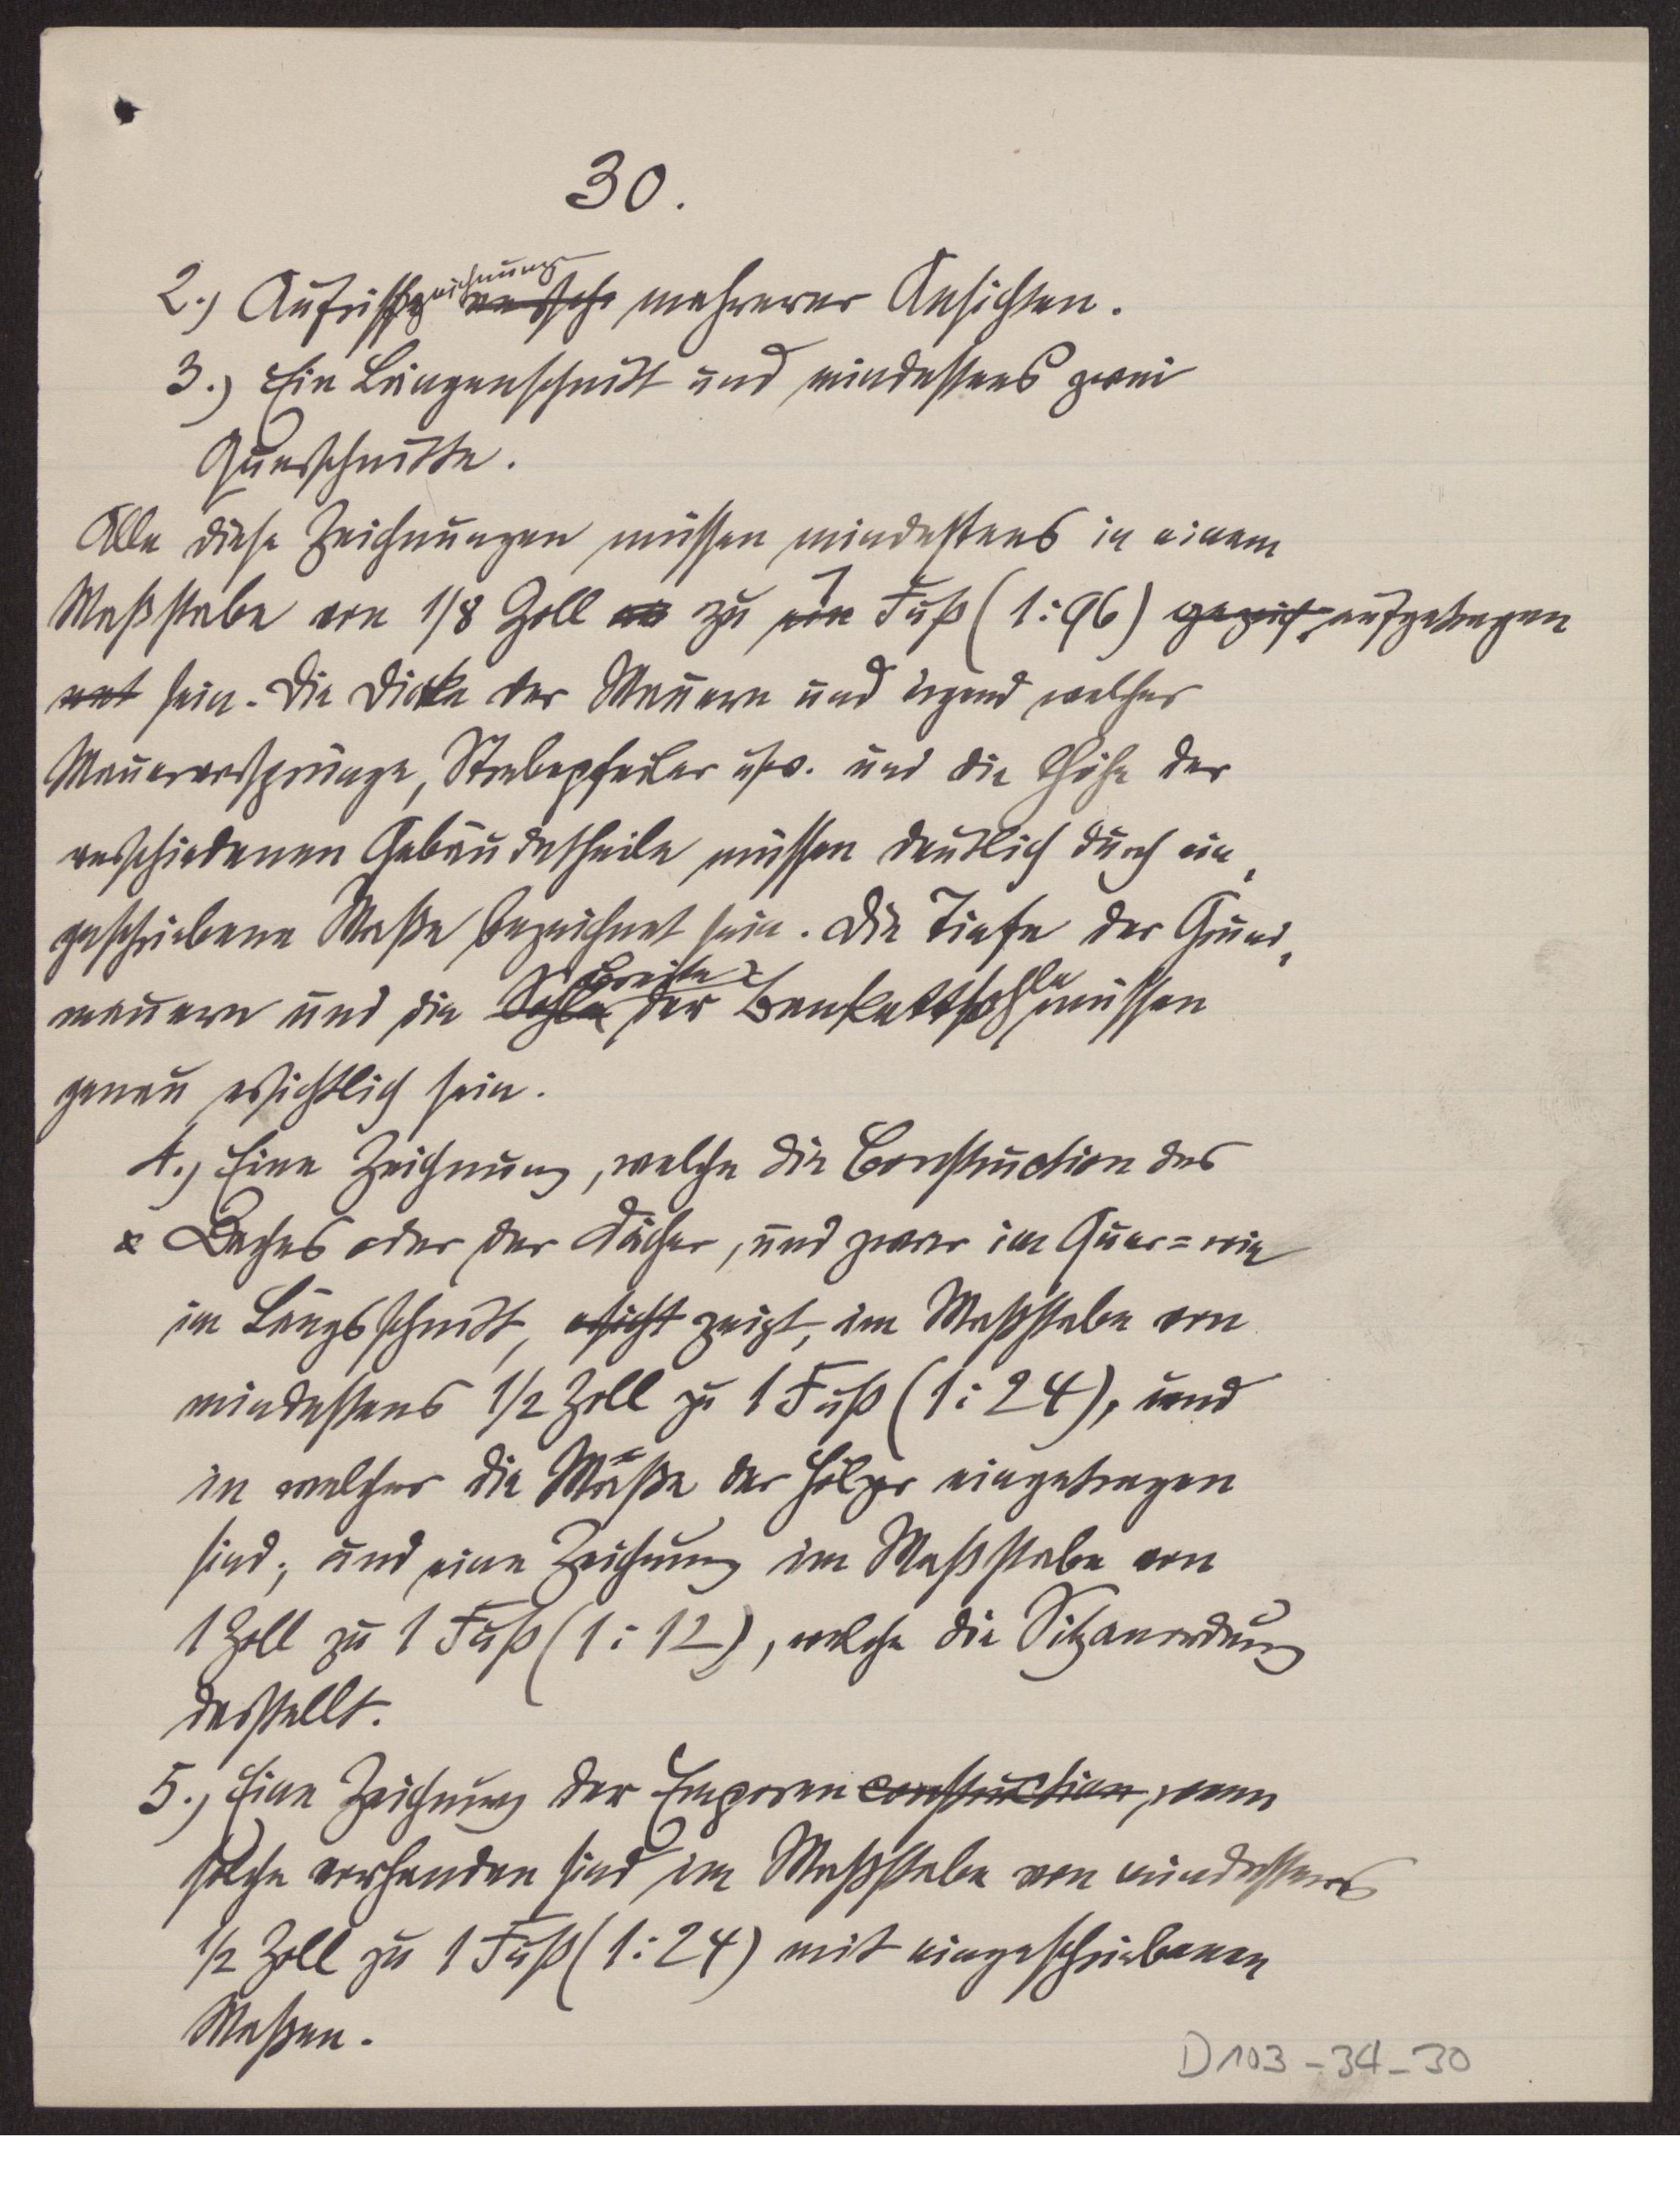 30.
2.) Aufrißzeichnung mehrerer Ansichten.
3.) Ein Längenschnitt und mindestens zwei
Querschnitte.
Alle diese Zeichnungen müssen mindestens in einem
Maßstabe von 1/8 Zoll zu 1 Fuß (1:96) aufgetragen
sein. Die Dicke der Mauern und irgend welcher
Mauervorsprünge, Strebepfeiler usw. und die Höhe der
verschiedenen Gebäudetheile müssen deutlich durch ein-
geschriebene Maße bezeichnet sein. Die Tiefe der Grund-
mauern und die Breite der Banketsohle müssen
genau ersichtlich sein.
4.) Eine Zeichnung, welche die Construction des
Daches oder der Dächer, und zwar im Quer= wie
im Längsschnitt, zeigt, im Maßstabe von
mindestens 1/2 Zoll zu 1 Fuß (1:24), und
in welcher die Maße der Hölzer eingetragen
sind; und eine Zeichnung im Maßstabe von
1 Zoll zu 1 Fuß (1:12), welche die Sitzanordnung
darstellt.
5.) Eine Zeichnung der Emporen construction, wenn
solche vorhanden sind im Maßstabe von mindestens
1/2 Zoll zu 1 Fuß (1:24) mit eingeschriebenen
Maßen.
D103-34-30